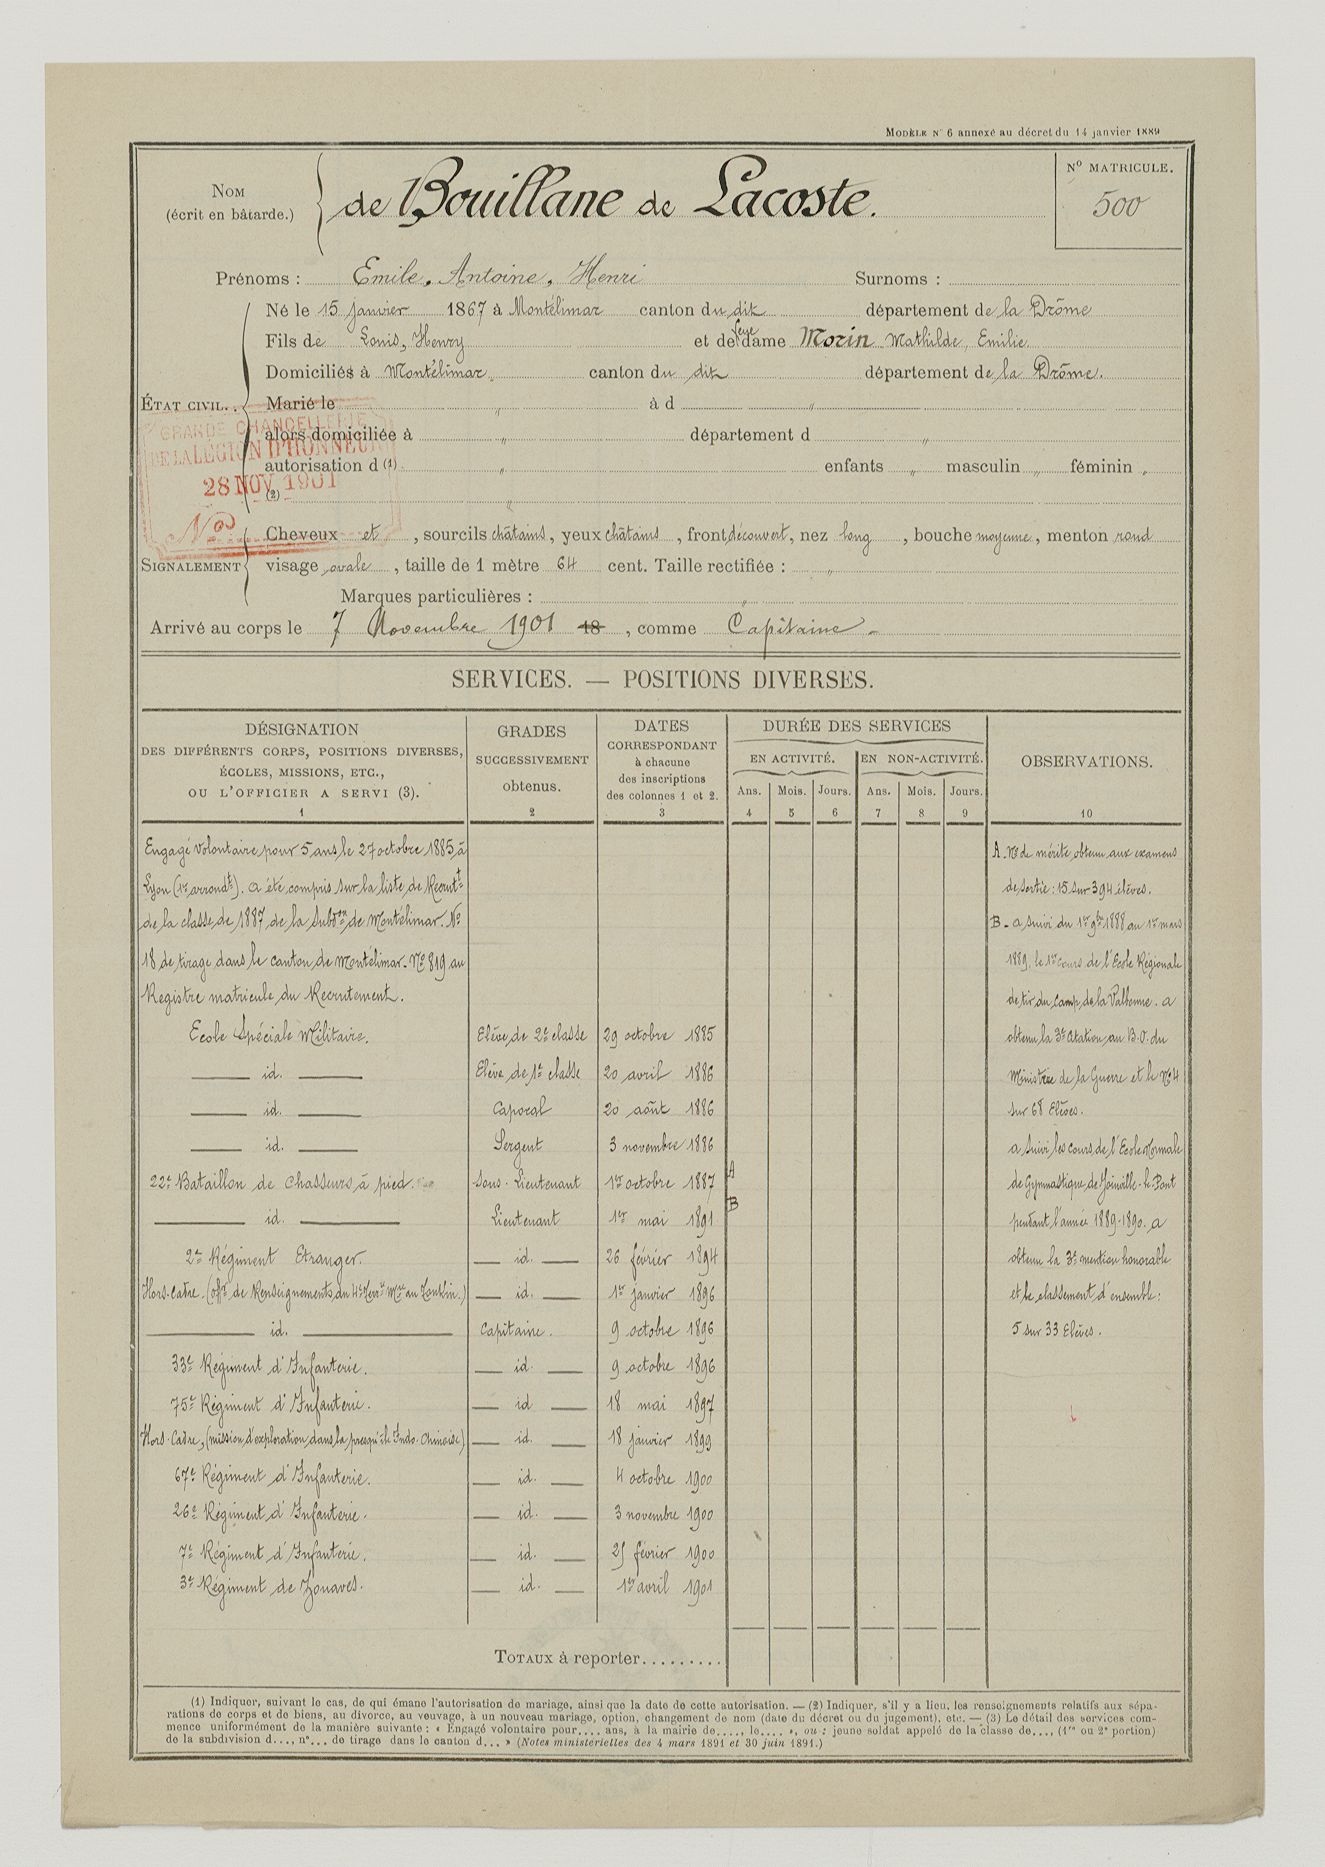 MODÈLE N° 6 annexé au décret du 14 janvier 1889
NOM
(écrit en bâtarde.)
de Bouillane de Lacoste.
N° MATRICULE.
500
Prénoms : Emile, Antoine, Henri Surnoms :
Né le 15 janvier 1867 à Montélimar canton du dit département de la Drôme
Fils de Louis, Henry et de feue dame Morin Mathilde, Emilie
Domiciliés à Montélimar, canton du dit département de la Drôme.
ÉTAT CIVIL..
Marié le " à d "
alors domiciliée à " département d "
autorisation d (1) " enfants " masculin " féminin "
(2) "
GRANDE CHANCELLERIE
DE LA LÉGION D'HONNEUR
28 NOV 1901
N°
SIGNALEMENT
Cheveux et , sourcils châtains, yeux châtains , front découvert, nez long , bouche moyenne, menton rond
visage ovale , taille de 1 mètre 64 cent. Taille rectifiée : "
Marques particulières : "
Arrivé au corps le 7 Novembre 1901 18 , comme Capitaine
SERVICES. — POSITIONS DIVERSES.
DÉSIGNATION
DES DIFFÉRENTS CORPS, POSITIONS DIVERSES,
ÉCOLES, MISSIONS, ETC.,
OU L'OFFICIER A SERVI (3).
1
GRADES
SUCCESSIVEMENT
obtenus.
2
DATES
CORRESPONDANT
à chacune
des inscriptions
des colonnes 1 et 2.
3
DURÉE DES SERVICES
EN ACTIVITÉ. EN NON-ACTIVITÉ.
Ans. Mois. Jours. Ans. Mois. Jours.
4 5 6 7 8 9
OBSERVATIONS.
10
Engagé volontaire pour 5 ans le 27 octobre 1885, à
Lyon (1er arrondt). a été compris sur la liste de Recrutt
de la classe de 1887 de la Subdon de Montélimar. No
18 de tirage dans le canton de Montélimar. No 819 au
Registre matricule du Recrutement.
Ecole Spéciale Militaire. Elève de 2e classe 29 octobre 1885
— id. — Elève de 1e classe 20 avril 1886
— id. — Caporal 20 août 1886
— id. — Sergent 3 novembre 1886
22e Bataillon de Chasseurs à pied. Sous-Lieutenant 1er octobre 1887 A
— id. — Lieutenant 1er mai 1891 B
2e Régiment Etranger. — id. — 26 février 1894
Hors-Cadre. (offr de Renseignements du 4e Terre Mre au Tonkin.) — id. — 1er janvier 1896
— id. — Capitaine. 9 octobre 1896
33e Régiment d'Infanterie. — id. — 9 octobre 1896
75e Régiment d'Infanterie. — id — 18 mai 1897
Hors-Cadre, (mission d'exploration dans la presqu'île Indo-Chinoise) — id. — 18 janvier 1899
67e Régiment d'Infanterie. — id. — 4 octobre 1900
26e Régiment d'Infanterie. — id. — 3 novembre 1900
7e Régiment d'Infanterie. — id. — 25 février 1900
3e Régiment de Zouaves. — id. — 1er avril 1901
A. No de mérite obtenu aux examens
de sortie : 15 sur 394 élèves.
B. a suivi du 1er 9bre 1888 au 1er mars
1889, le 1er cours de l'Ecole Régionale
de tir du camp de la Valbonne. a
obtenu la 3e Citation au B.O. du
Ministère de la Guerre et le No 4
sur 68 Elèves.
a suivi les cours de l'Ecole Normale
de Gymnastique de Joinville-le-Pont
pendant l'année 1889-1890. a
obtenu la 3e mention honorable
et le classement d'ensemble :
5 sur 33 Elèves.
TOTAUX à reporter.........
(1) Indiquer, suivant le cas, de qui émane l'autorisation de mariage, ainsi que la date de cette autorisation. — (2) Indiquer, s'il y a lieu, les renseignements relatifs aux sépa-
rations de corps et de biens, au divorce, au veuvage, à un nouveau mariage, option, changement de nom (date du décret ou du jugement), etc. — (3) Le détail des services com-
mence uniformément de la manière suivante : « Engagé volontaire pour.... ans, à la mairie de...., le.... », ou : jeune soldat appelé de la classe de..., (1re ou 2e portion)
de la subdivision d..., n°... de tirage dans le canton d... » (Notes ministérielles des 4 mars 1891 et 30 juin 1891.)